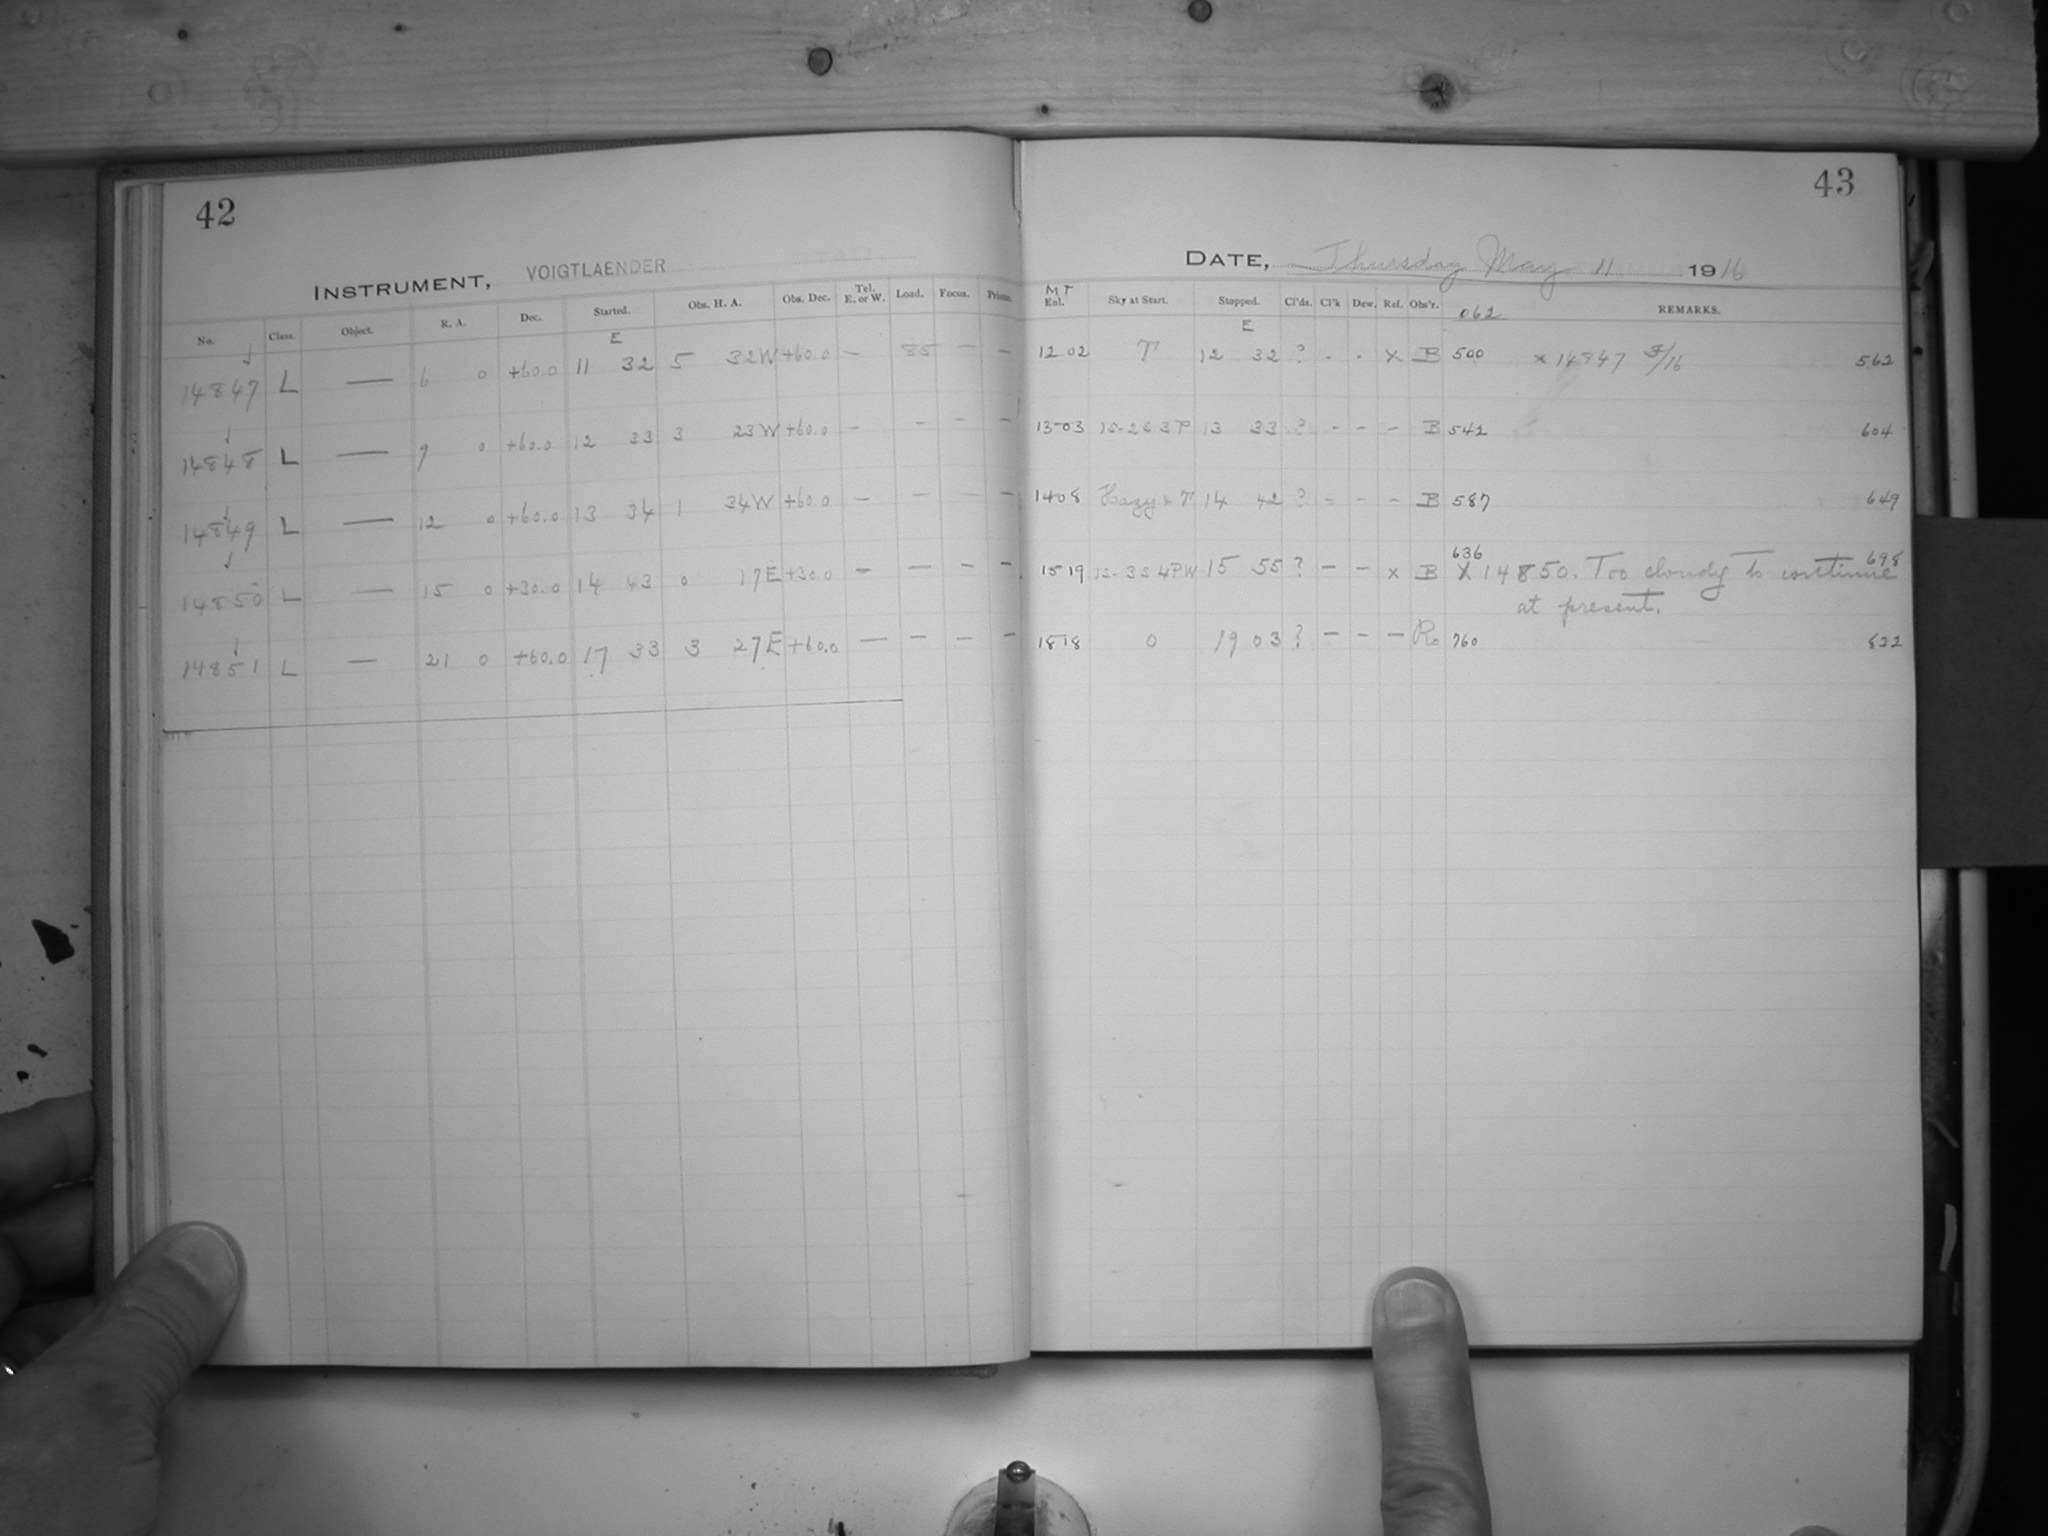 42
INSTRUMENT, VOIGTLAENDER
No. Class. Object. R. A. Dec. Started. Obs. H. A. Obs. Dec. Tel. E. or W. Load. Focus. Prisms.
E
14847 L — 6 0 +60.0 11 32 5 32W +60.0 — 85 — —
14848 L — 9 0 +60.0 12 33 3 23W +60.0 — — — —
14849 L — 12 0 +60.0 13 34 1 34W +60.0 — — — —
14850 L — 15 0 +30.0 14 43 0 17E +30.0 — — — —
14851 L — 21 0 +60.0 17 33 3 27E +60.0 — — — —
43
DATE, Thursday May 11 1916
MT
Sky at Start. Stopped. Cl'ds. Cl'k Dew. Ref. Obs'r. 062 REMARKS.
E
12 02 T 12 32 ? - - X B 500 x 14847 5/16 562
13 03 13 33 ? - - - B 541 604
14 08 Hazy & T 14 42 ? - - - B 587 649
15 19 15 55 ? - - x B 636 X 14850. Too cloudy to continue 698
at present.
18 18 0 19 03 ? - - - Ro 760 822